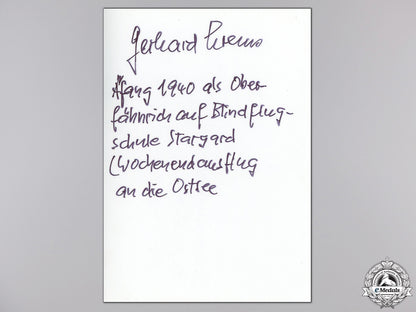 Gerhard Krems
Afang 1940 als Ober-
fähnrich auf Blindflug-
schule Stargard
(Wochenendausflug
an die Ostsee
eMedals